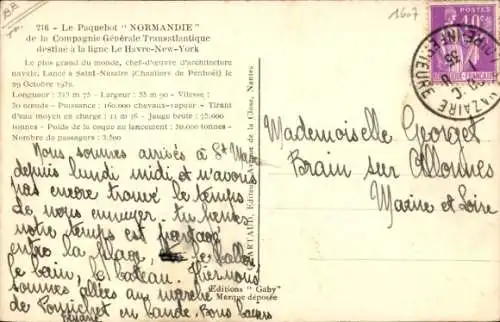 BB
1607
716 - Le Paquebot "NORMANDIE"
de la Compagnie Générale Transatlantique
destiné à la ligne Le Havre-New-York
Le plus grand du monde, chef-d'œuvre d'architecture
navale. Lancé à Saint-Nazaire (Chantiers de Penhoët) le
29 Octobre 1932.
Longueur : 313 m 75 - Largeur : 35 m 90 - Vitesse :
30 nœuds - Puissance : 160.000 chevaux-vapeur - Tirant
d'eau moyen en charge : 11 m 16 - Jauge brute : 75.000
tonnes - Poids de la coque au lancement : 30.000 tonnes -
Nombre de passagers : 2.800
Nous sommes arrivés à St
depuis lundi midi et n'avons
pas encore trouvé le temps
de vous envoyer.
notre temps est partagé
entre la plage, le ballon,
le bain, le bateau. Hier nous
sommes allées au marché
de Pornichet en bande. Bons baisers
Editions "Gaby"
Marque déposée
ARTAUD, Editeur, de la Close, Nantes
40c
Mademoiselle Georget
Brain sur Allonnes
Maine et Loire